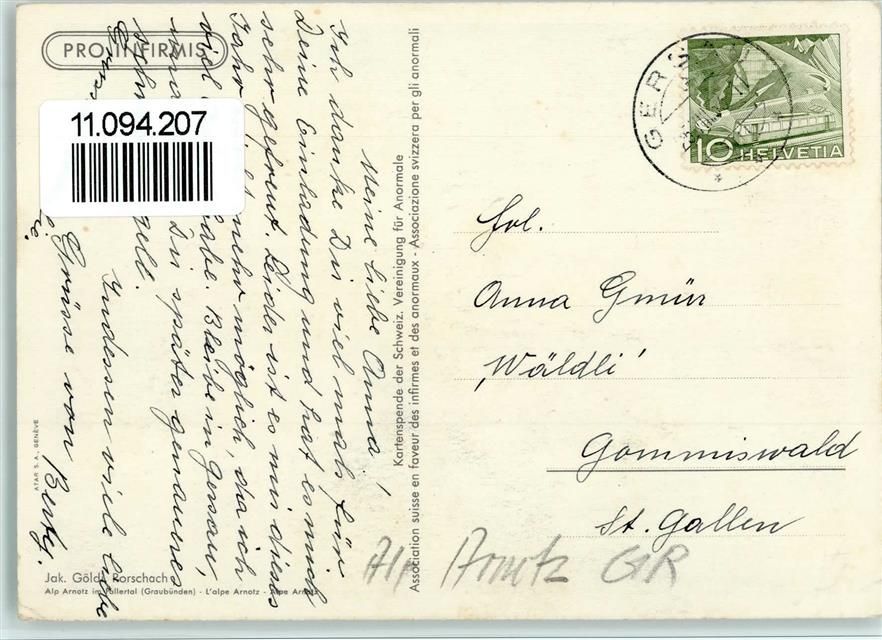 PRO INFIRMIS
11.094.207
Meine liebe Anna!
Ich danke Dir viel mals für
Deine Einladung und hat es mich
sehr gefreut. Leider ist es mir dieses
Jahr nicht mehr möglich, da ich
viel habe. Bleibe in Gersau,
Du später genaueres
Indessen viele liebe
Grüsse von Berty.
Kartenspende der Schweiz. Vereinigung für Anormale
Association suisse en faveur des infirmes et des anormaux - Associazione svizzera per gli anormali
ATAR S. A., GENÈVE
Jak. Göldi, Rorschach
Alp Arnotz im Füllertal (Graubünden) - L'alpe Arnotz - Alpe Arnotz
GERSAU
10 HELVETIA
Frl.
Anna Gmür
"Wäldli"
Gommiswald
St. Gallen
Alp Arnotz GR